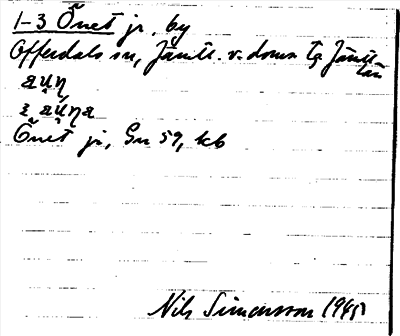 1-3 Õnet jr, by
Offerdals sn, Jämtl. v. doms tg Jämtl
län
Õnet jr, Gn 59, kb
Nils Simonsson 1945